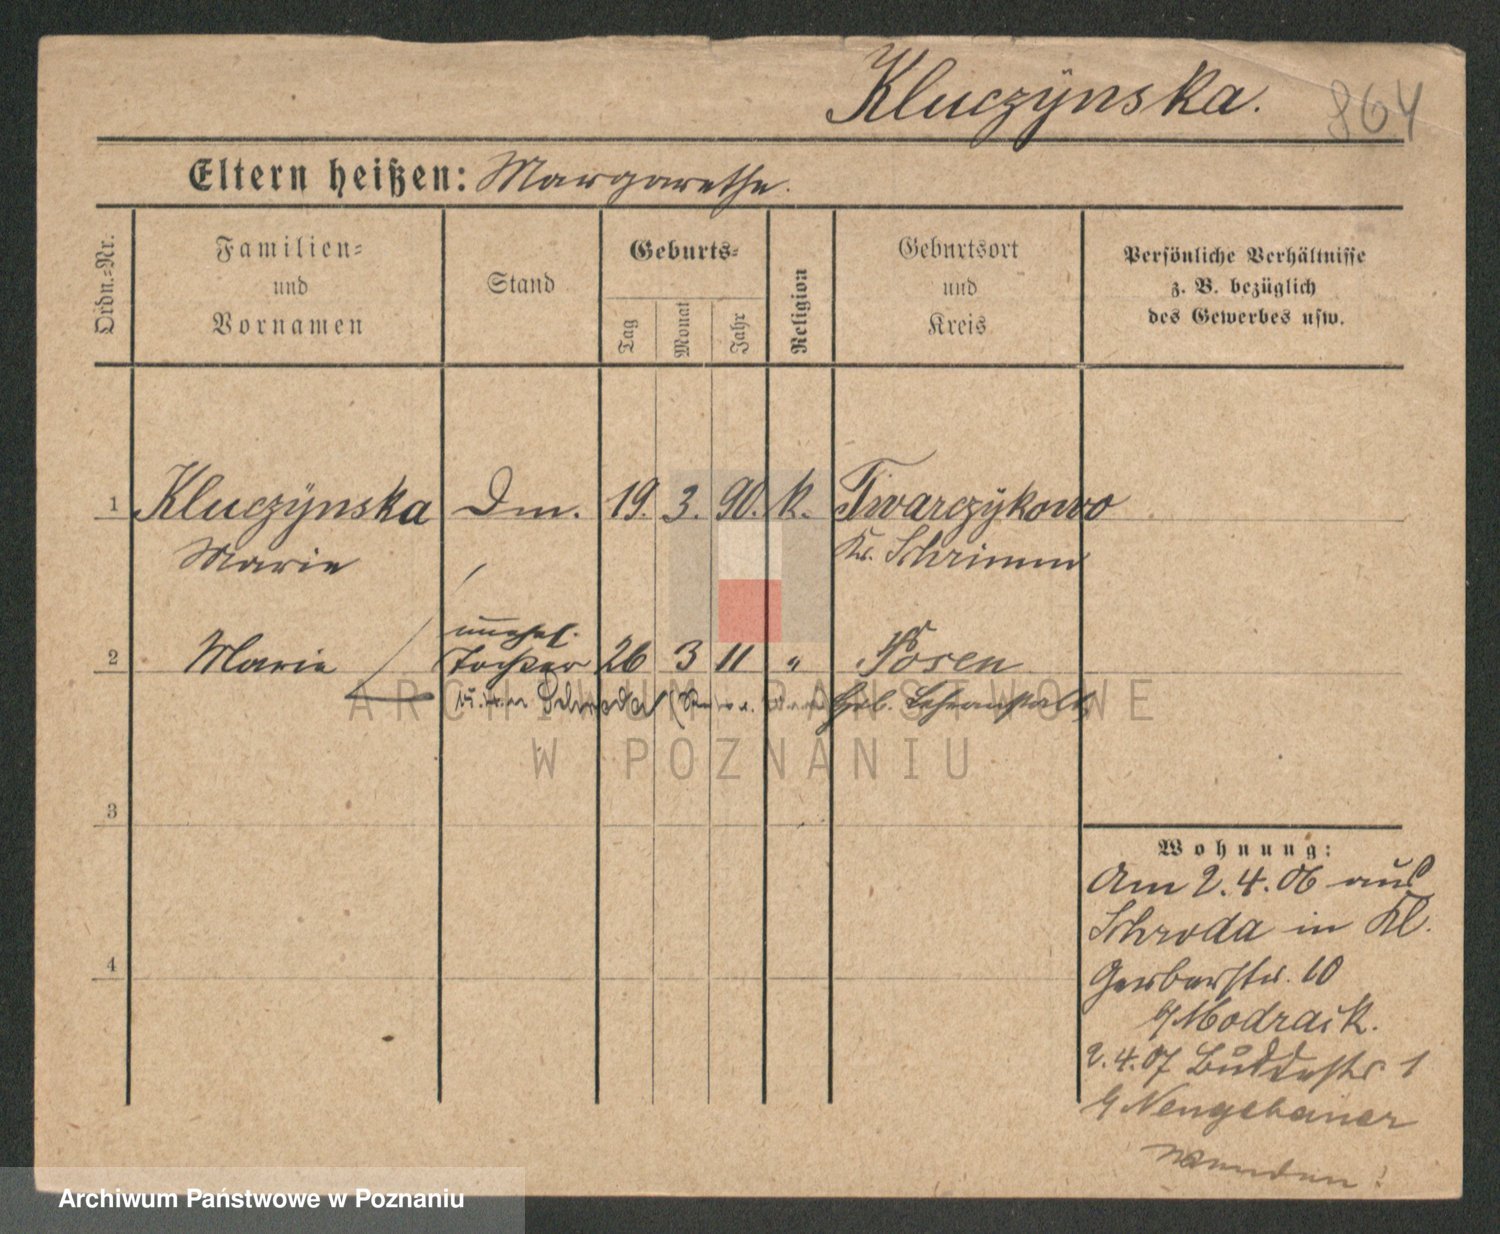 Kluczÿnska.
864
Eltern heißen: Margarethe.
Ordn.=Nr.
Familien=
und
Vornamen
Stand
Geburts=
Tag
Monat
Jahr
Religion
Geburtsort
und
Kreis
Persönliche Verhältnisse
z. B. bezüglich
des Gewerbes usw.
1 Kluczÿnska Dm. 19. 3. 90. k. Twarczÿkowo
Marie Kr. Schrimm
unehel.
2 Marie Tochter 26 3 11 " Posen
Geb. Lehranstalt
ARCHIWUM PAŃSTWOWE
W POZNANIU
3
4
Wohnung:
Am 2.4.06 aus
Schroda in Kl.
Gerberstr. 10
b/Modraik.
2.4.07 Buddestr. 1
b/Neugebauer
wenden!
Archiwum Państwowe w Poznaniu